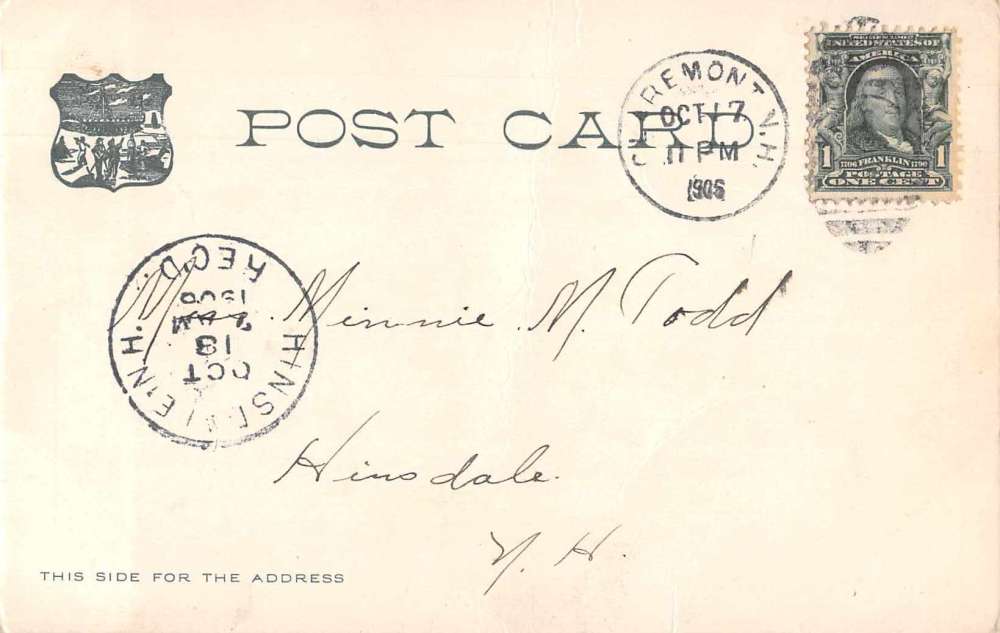 POST CARD
CLAREMONT, N.H.
OCT 17
11 PM
1905
SERIES 1902
UNITED STATES OF
AMERICA
1 1706 FRANKLIN 1790 1
POSTAGE
ONE CENT
HINSDALE, N.H.
OCT
18
AM
REC'D.
Minnie M. Todd
Hinsdale.
N. H.
THIS SIDE FOR THE ADDRESS